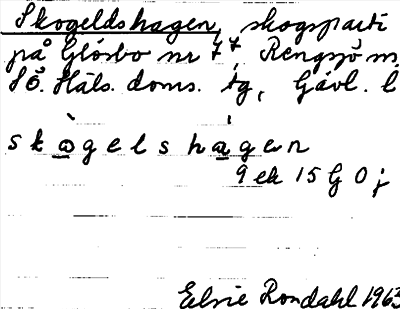 Skogeldshagen, skogsparti
på Glösbo nr 7⁴, Rengsjö sn,
Sö. Häls. doms. tg, Gävl. l
skògelshágen
9 ek 15 G 0 j
Elsie Rondahl 1963